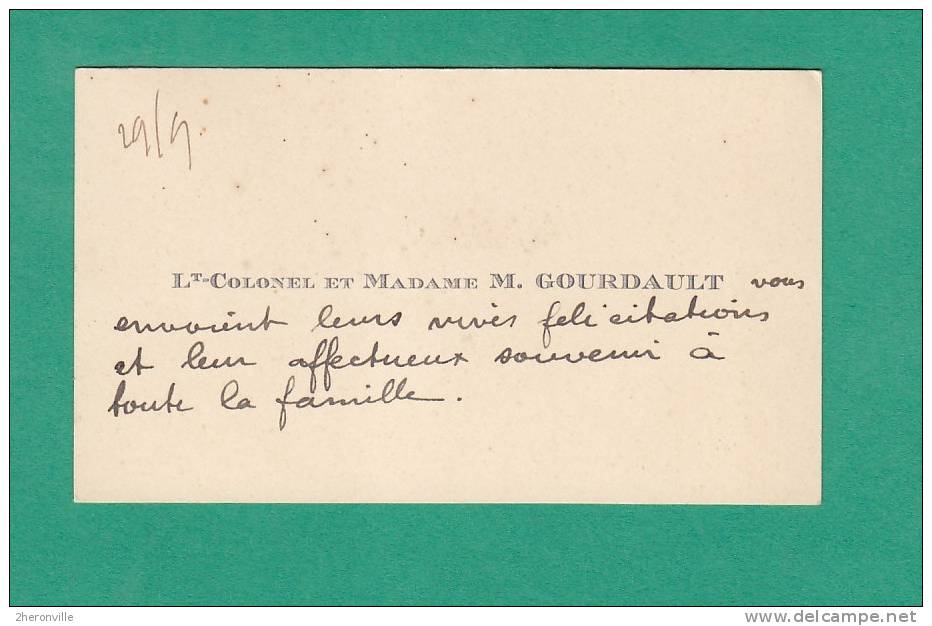 29/9
LT-COLONEL ET MADAME M. GOURDAULT vous
envoient leurs vives felicitations
et leur affectueux souvenir à
toute la famille.
2heronville
delcampe.net